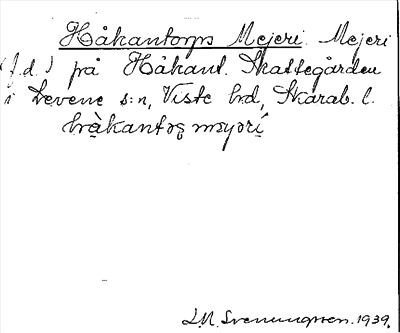 Håkantorps Mejeri. Mejeri
(f.d.) på Håkant. Skattegården
i Levene s:n, Viste hd, Skarab. l.
hå̀kantǝʂ mǝyǝrí
L.M. Svenungsson. 1939.